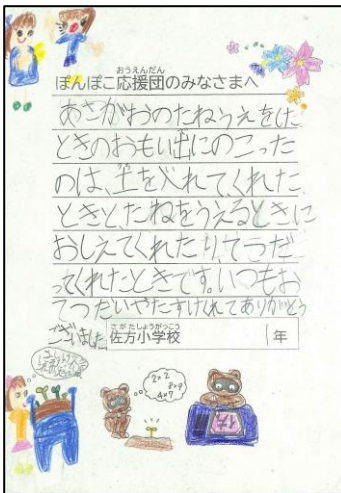 ぽんぽこ応援団のみなさまへ
おうえんだん
あさがおのたねうえをした
ときのおもい出にのこった
のは、土を入れてくれた
ときと、たねをうえるときに
おしえてくれたり、てつだ
ってくれたときです。いつもお
てつだいやたすけくれてありがとう
ございました
さがたしょうがっこう
佐方小学校 1年
2×2
8×9
4×7